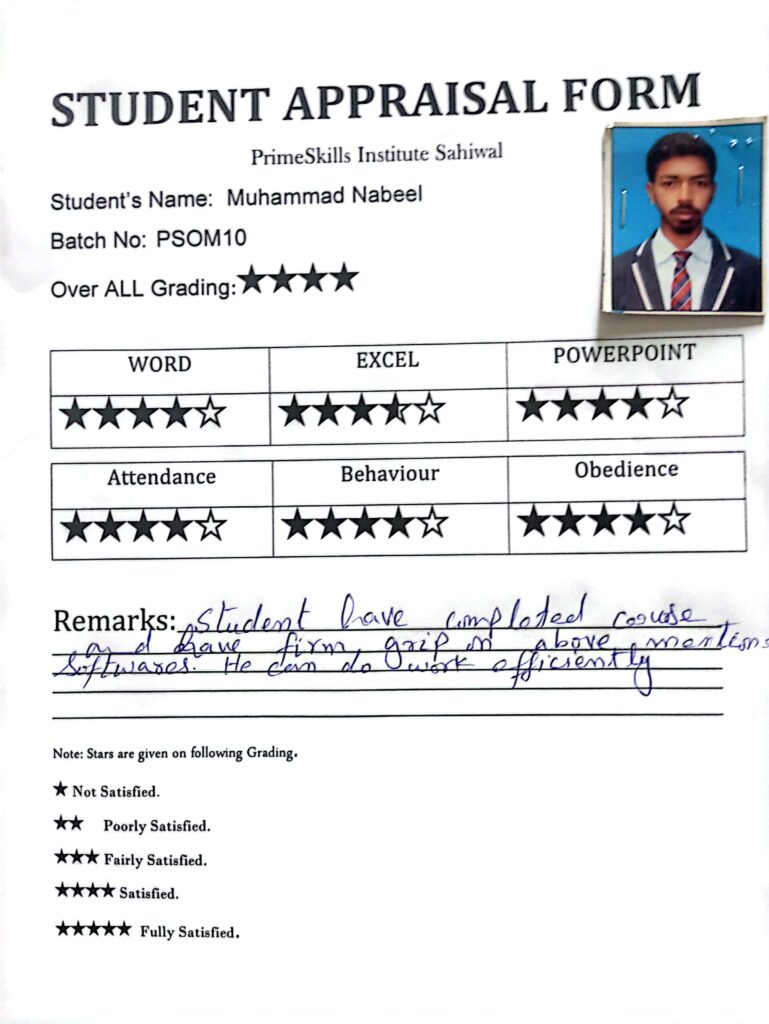 STUDENT APPRAISAL FORM
PrimeSkills Institute Sahiwal
Student's Name: Muhammad Nabeel
Batch No: PSOM10
Over ALL Grading:★★★★
WORD EXCEL POWERPOINT
★★★★☆ ★★★⯪☆ ★★★★☆
Attendance Behaviour Obedience
★★★★☆ ★★★★☆ ★★★★☆
Remarks: Student have completed course
and have firm grip on above mentions
softwares. He can do work efficiently
Note: Stars are given on following Grading.
★ Not Satisfied.
★★ Poorly Satisfied.
★★★ Fairly Satisfied.
★★★★ Satisfied.
★★★★★ Fully Satisfied.